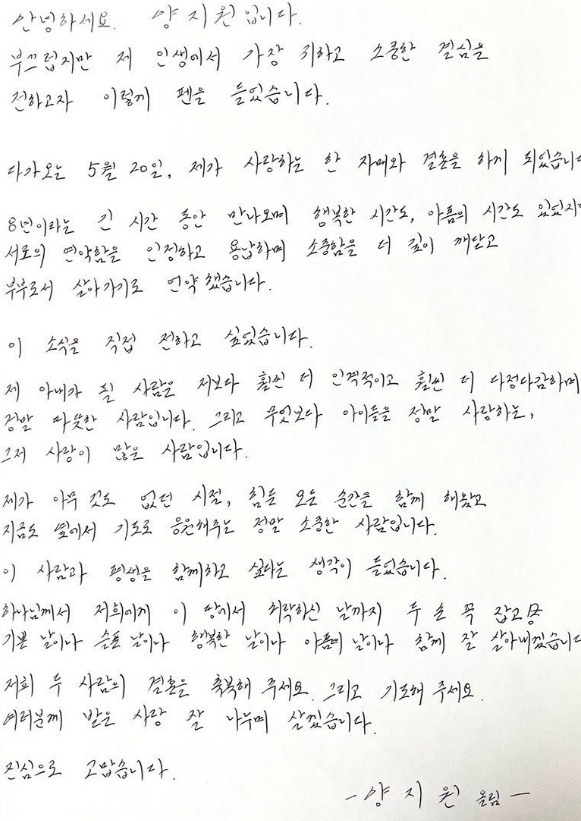 안녕하세요. 양지원입니다.
부끄럽지만 제 인생에서 가장 귀하고 소중한 결심을
전하고자 이렇게 펜을 들었습니다.
다가오는 5월 20일, 제가 사랑하는 한 자매와 결혼을 하게 되었습니다
8년이라는 긴 시간 동안 만나오며 행복한 시간도, 아픔의 시간도 있었지만
서로의 연약함을 인정하고 용납하며 소중함을 더 깊이 깨닫고
부부로서 살아가기로 언약했습니다.
이 소식을 직접 전하고 싶었습니다.
제 아내가 될 사람은 저보다 훨씬 더 인격적이고 훨씬 더 다정다감하며
정말 따뜻한 사람입니다. 그리고 무엇보다 아이들을 정말 사랑하는,
그저 사랑이 많은 사람입니다.
제가 아무것도 없던 시절, 힘든 모든 순간을 함께 해왔고
지금도 옆에서 기도로 응원해주는 정말 소중한 사람입니다.
이 사람과 평생을 함께하고 싶다는 생각이 들었습니다.
하나님께서 저희에게 이 땅에서 허락하신 날까지 두 손 꼭 잡고
기쁜 날이나 슬픈 날이나 행복한 날이나 아픔의 날이나 함께 잘 살아내겠습니다
저희 두 사람의 결혼을 축복해 주세요. 그리고 기도해 주세요.
여러분께 받은 사랑 잘 나누며 살겠습니다.
진심으로 고맙습니다.
- 양지원 올림 -